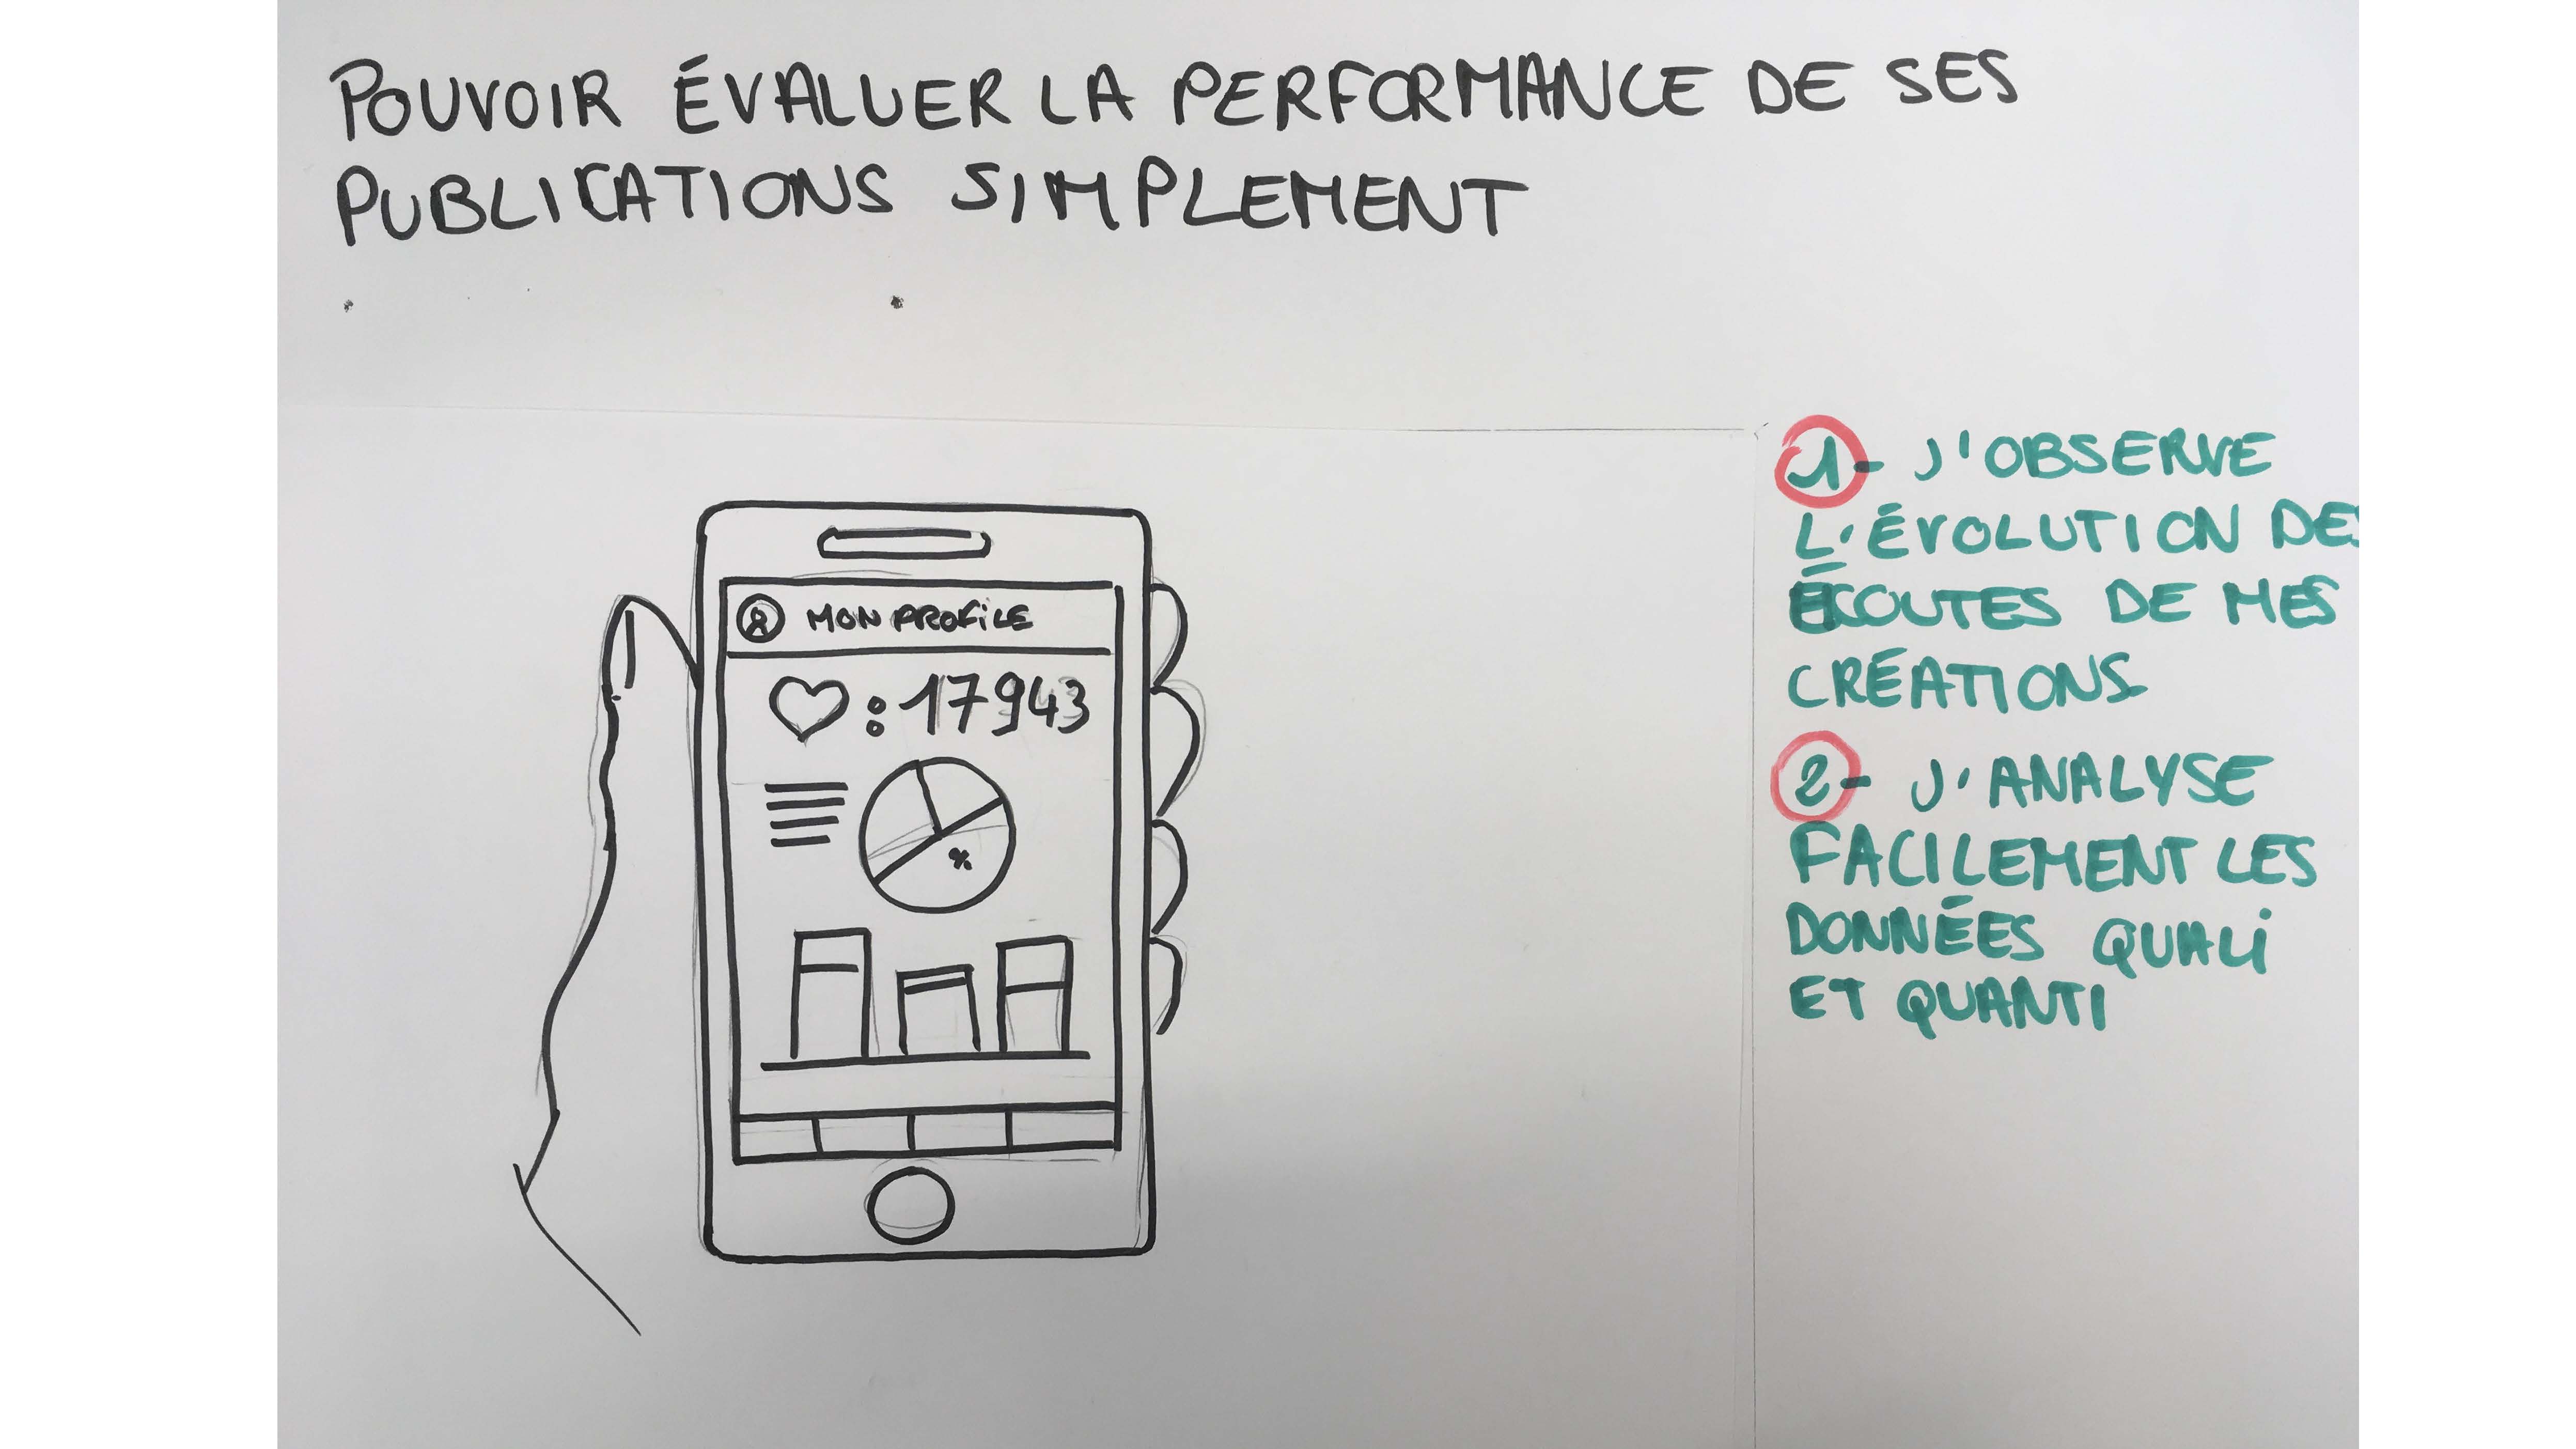 POUVOIR ÉVALUER LA PERFORMANCE DE SES
PUBLICATIONS SIMPLEMENT
MON PROFILE
: 17943
%
1- J'OBSERVE
L'ÉVOLUTION DES
ÉCOUTES DE MES
CRÉATIONS
2- J'ANALYSE
FACILEMENT LES
DONNÉES QUALI
ET QUANTI